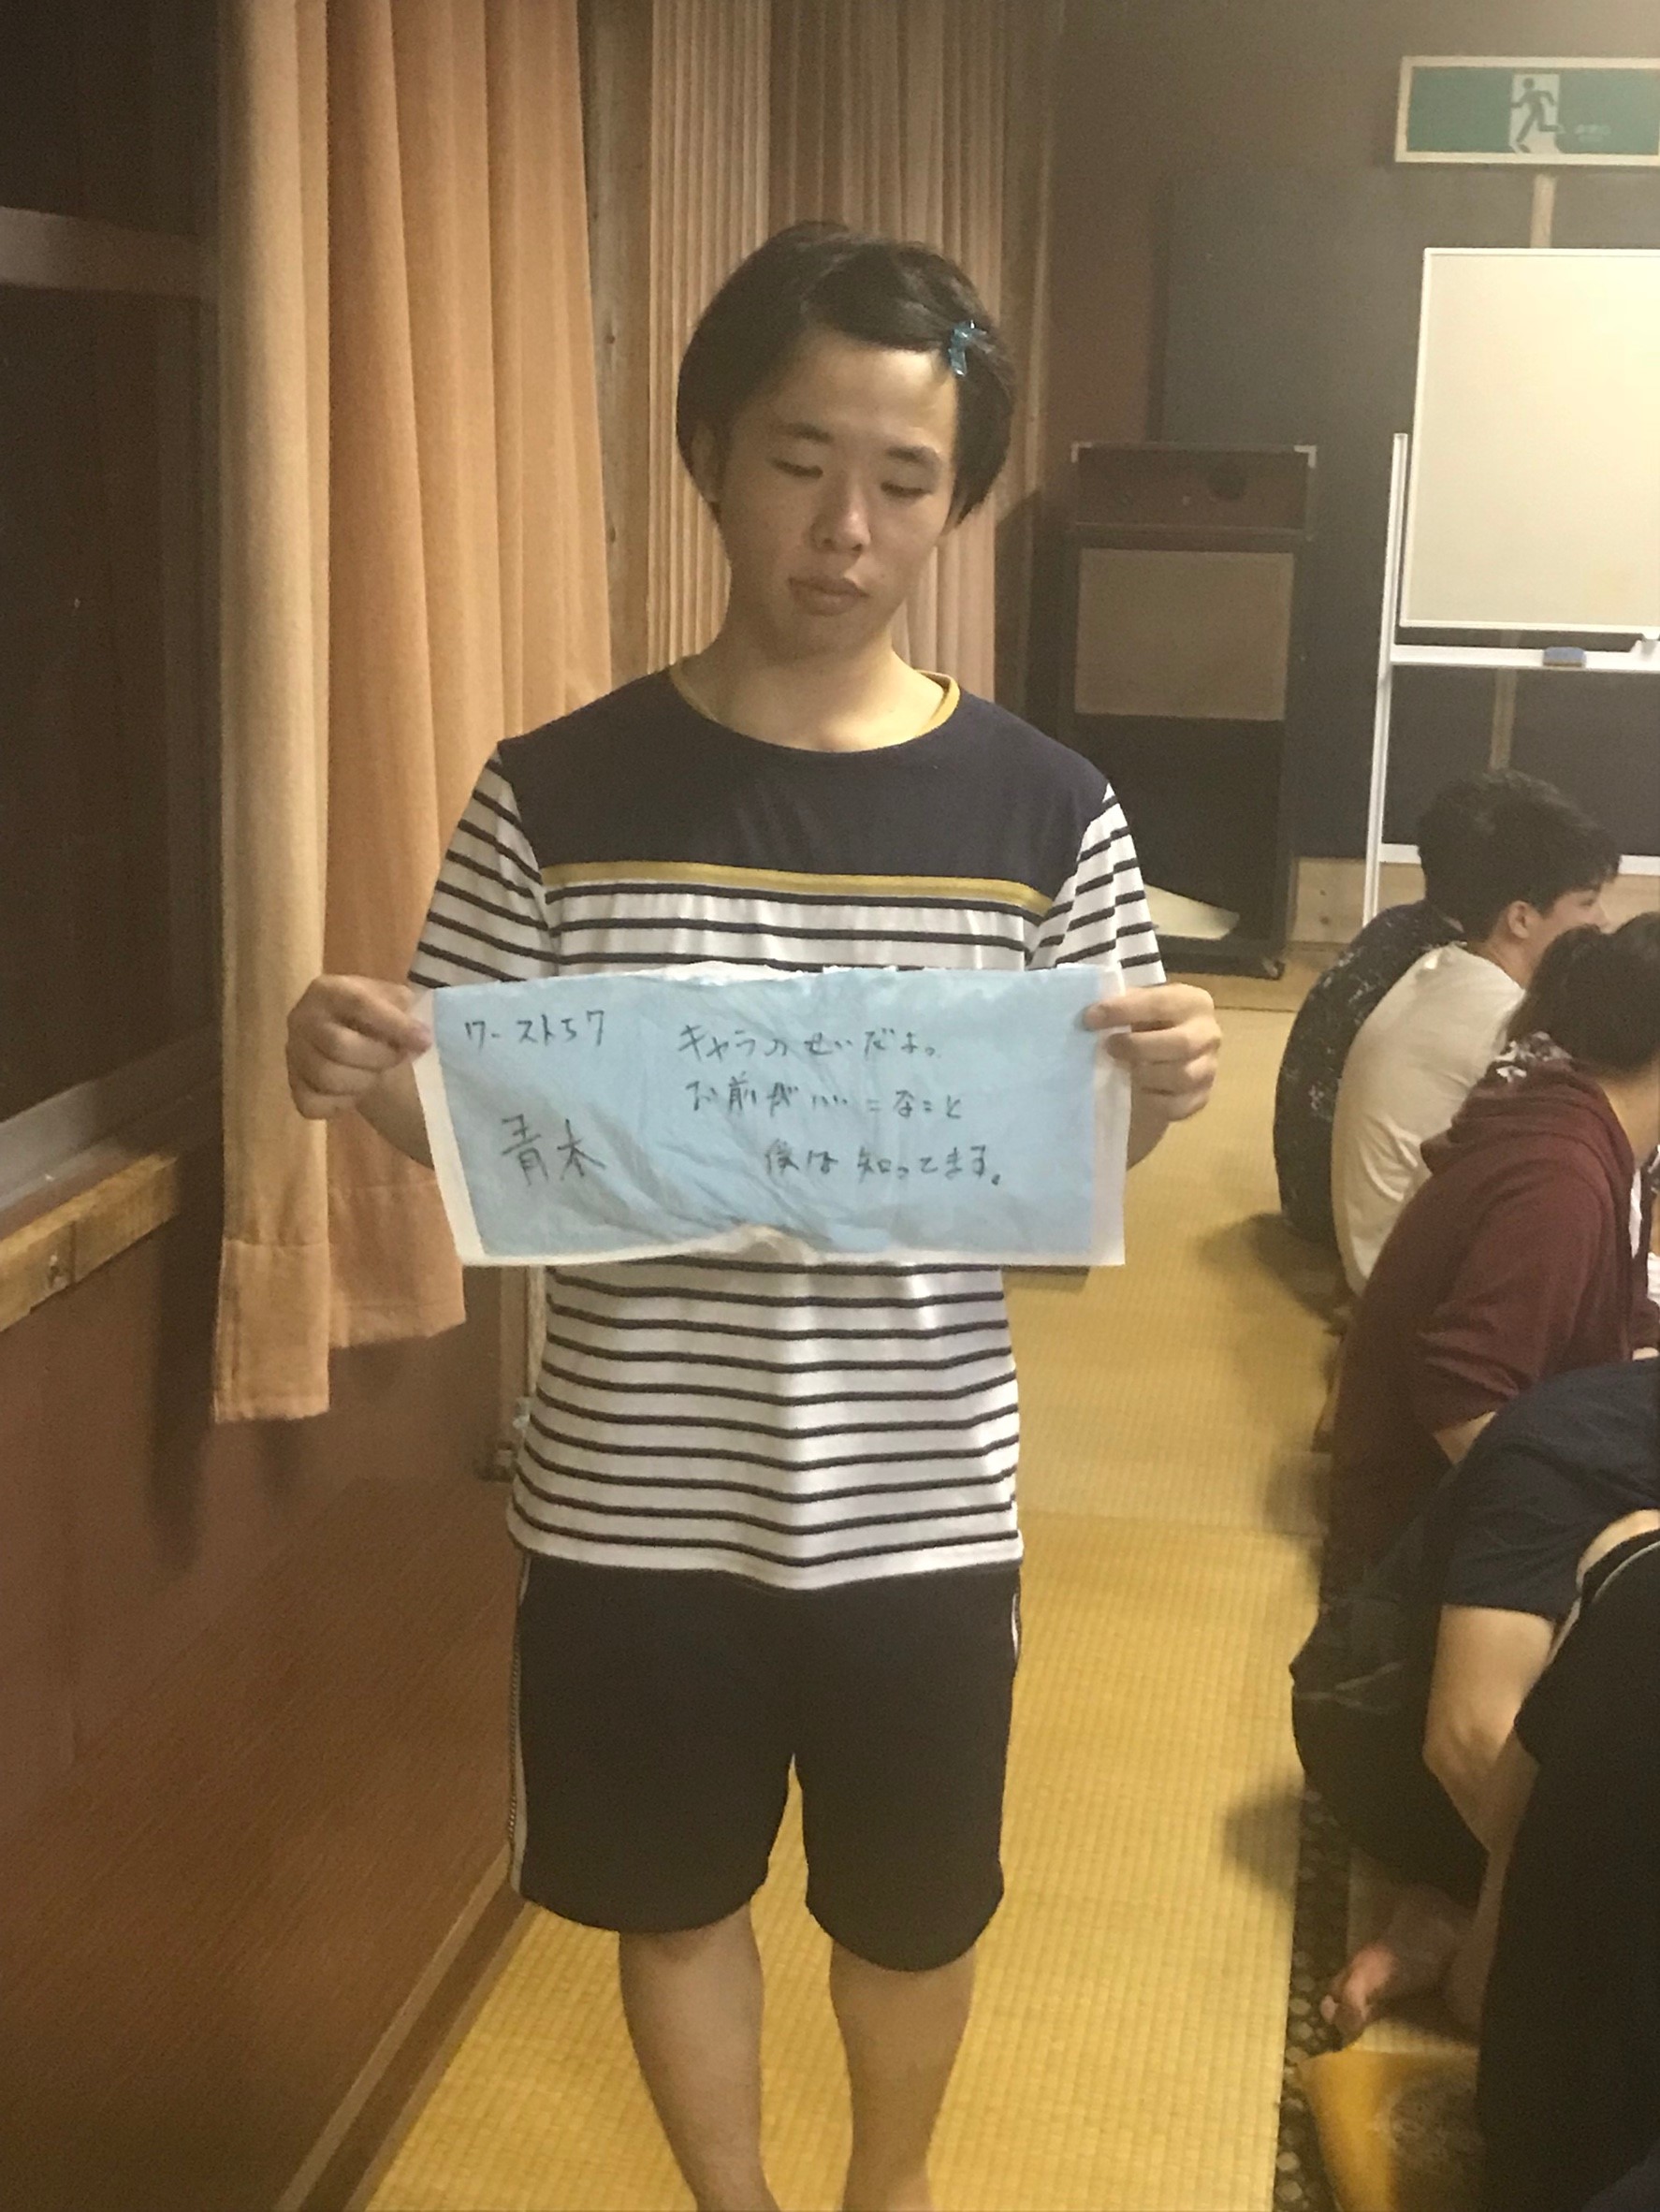 ワーストち7
青木
キャラのせいだよ。
お前がいいこなこと
僕は知ってます。